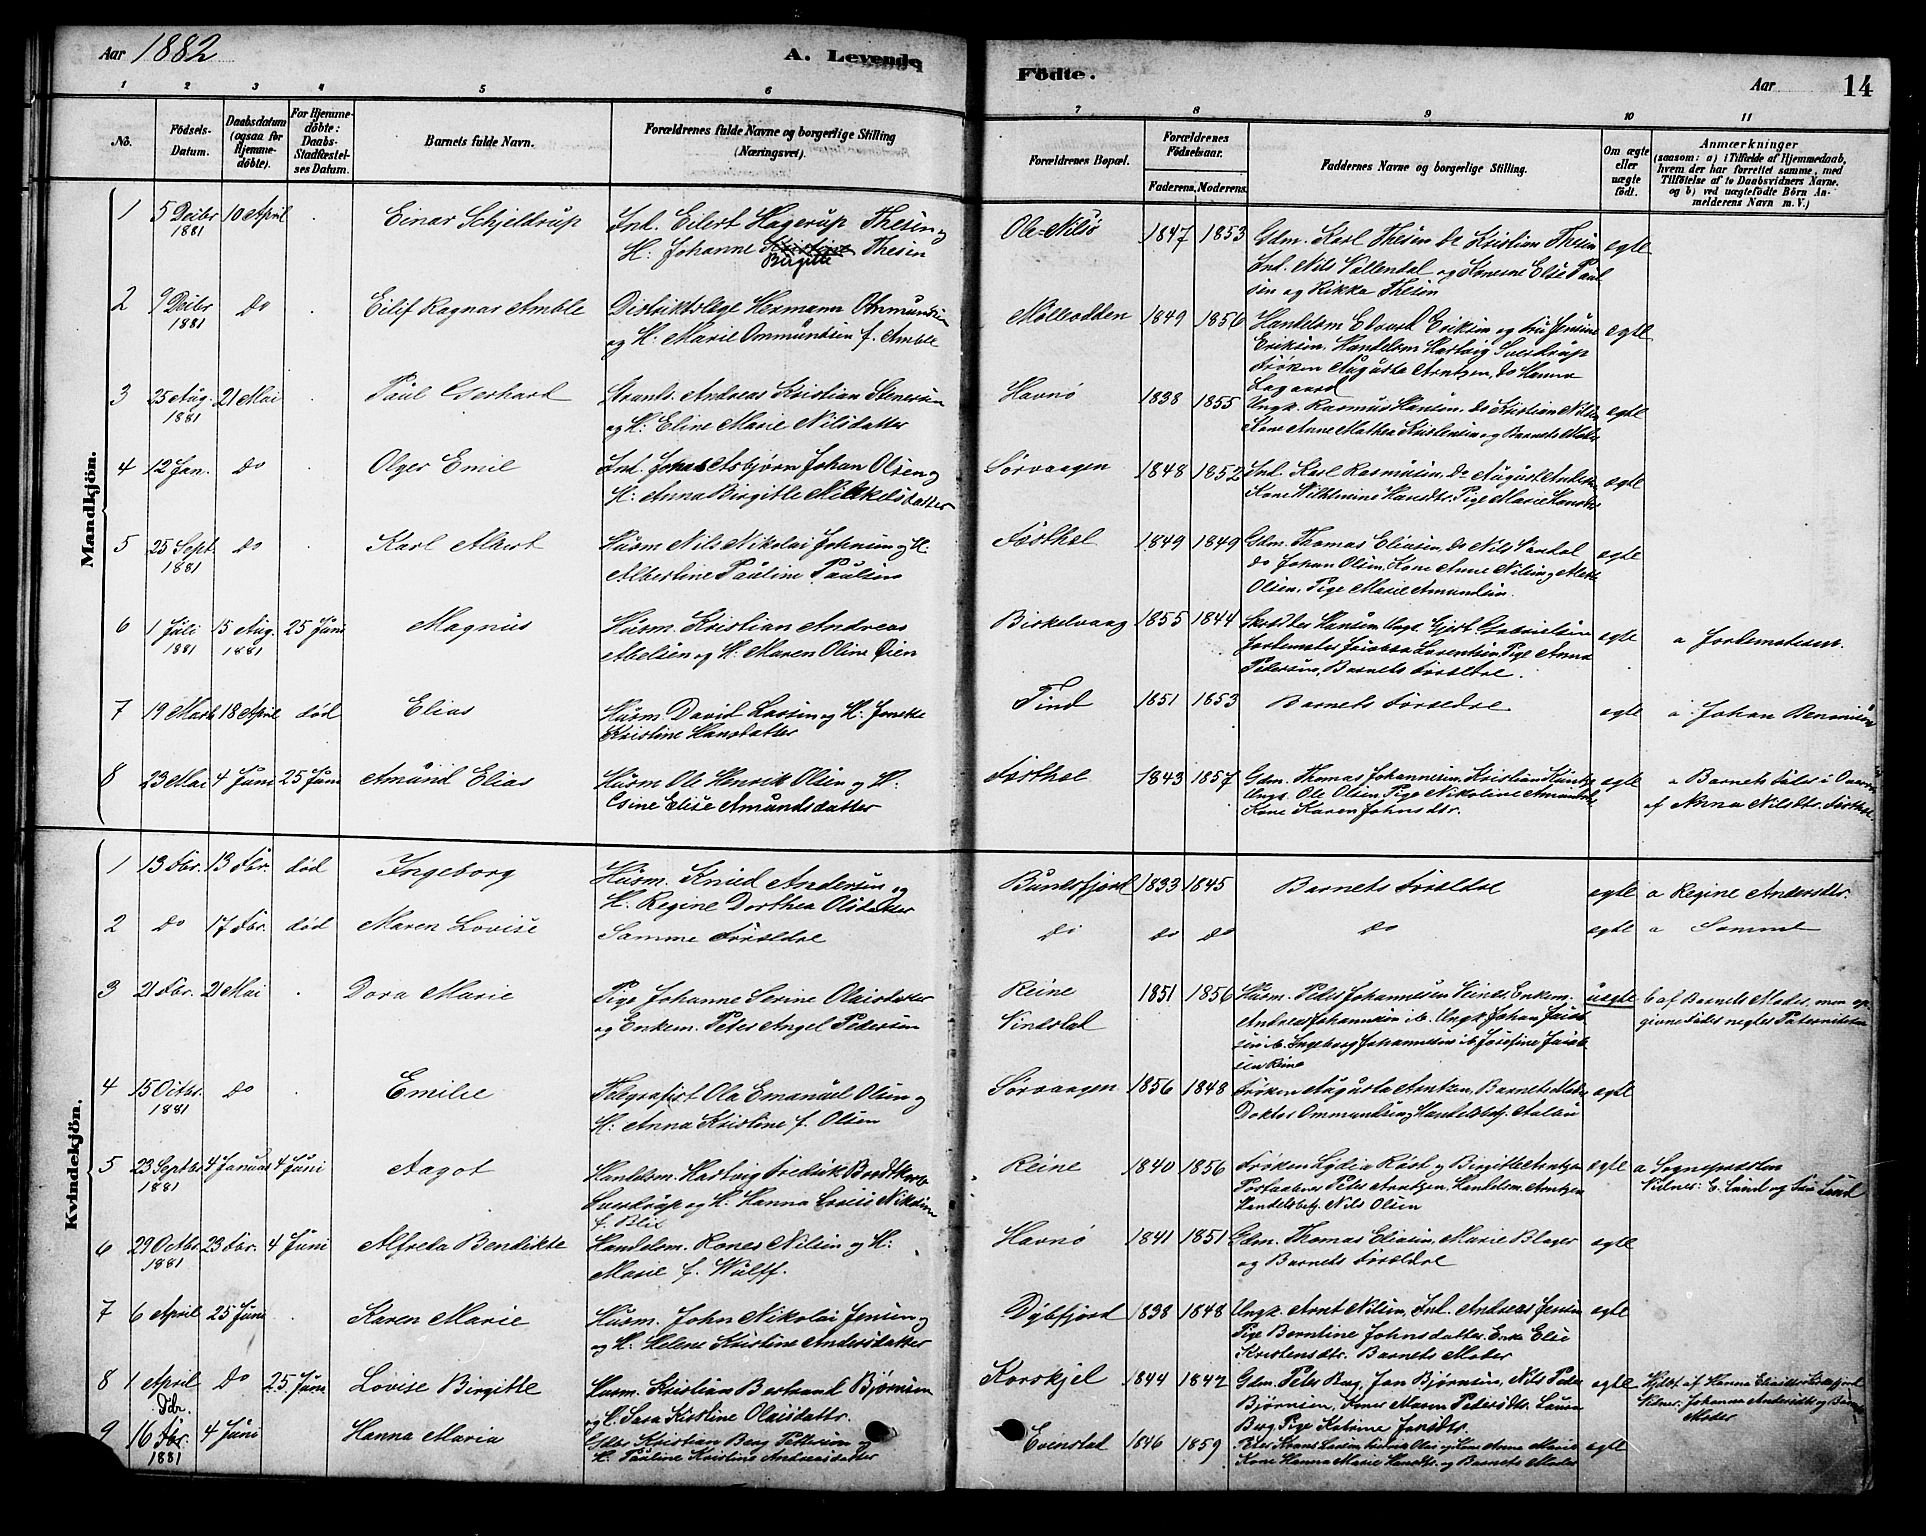 Aar 1882
A. Levende
Födte.
Aar
14
1 2 3 4 5 6 7 8 9 10 11
No.
Födsels-Datum.
Daabsdatum (ogsaa for Hjemme-døbte).
For Hjemme-døbte: Daabs-Stadfæstel-ses Datum.
Barnets fulde Navn.
Forældrenes fulde Navne og borgerlige Stilling (Næringsvei).
Forældrenes Bopæl.
Forældrenes Födselsaar.
Faderens. Moderens.
Faddernes Navne og borgerlige Stilling.
Om ægte eller uægte født.
Anmærkninger (saasom: a) i Tilfælde af Hjemmedaab, hvem der har forrettet samme, med Tilføielse af to Daabsvidners Navne, og b) ved uægtefødte Börn An-melderens Navn m. V.)
Mandkjön.
1 5 Decbr 10 April . Einar Schjeldrup Ind. Eilert Hagerup Thesen og Ole-Nilsö 1847 1853 Gdm. Karl Thesen do Kristian Thesen egte
1881 H. Johanne Kristine Thesen Ind. Nils Vallendal og Konerne Elise Paul
Birgitte sen og Rikka Thesen
2 9 Decbr do . Eilif Ragnar Amble Distriktslæge Hermann Ommundsen Mölleodden 1849 1856 Handelsm Edvard Eriksen og Fru Jensine egte
1881 og H. Marie Ommundsen f. Amble Eriksen, Handelsm Hartvig Sverdrup
Frøken Augusta Arntzen, do Hanna
Lagaard
3 25 Aug. 21 Mai . Paul Gerhard Strands. Andreas Kristian Stenersen Havnø 1838 1855 Ungk. Rasmus Hansen, do Kristian Nilsen egte
1881 og H. Eline Marie Nilsdatter Kone Anne Mathea Kristensen og Barnets Moder
4 12 Jan. do . Olger Emil Ind. Asbjørn Johan Olsen og Sørvaagen 1848 1852 Ind. Karl Rasmussen, do August Anders egte
H. Anna Birgitte Nikkelsdatter Kone Vilhelmine Hansdtr. Pige Marie Hansdtr
5 25 Sept do . Karl Albert Husm Nils Nikolai Johnsen og H. Festhæl 1849 1849 Gdm. Thomas Eliasen, do Nils egte
1881 Albertine Pauline Paulsen do Johan Olsen, Kone Anne Nilsen
Olsen, Pige Marie Amundsen.
6 1 Juli 15 Aug. 25 Juni Magnus Husm. Kristian Andreas Birkelvaag 1855 1844 Hansen Ungk. Gjert Gabrielsen egte a Jordemoderen.
1881 1881 Abelsen og H. Maren Oline Jordemoder Jakobea Larentsen, Pige Anna
Petersen, Barnets Forældre.
7 19 Marts 18 April død Elias Husm David Larsen og H. Find 1851 1853 Barnets Forældre egte a Johan Benonisen
Kristine Hansdatter
8 23 Mai 4 Juni 25 Juni Amund Elias Husm Ole Henrik Olsen og H. Festhæl 1843 1857 Gdm. Thomas Johannesen, Kristian egte a Barnets Fader i
Elise Amundsdatter Ungk. Ole Olsen, Pige Nikoline Amundsdtr af Anna Nilsdtr.
Kone Karen Johnsdtr.
Kvindekjön.
1 13 Fbr. 13 Fbr. død Ingeborg Husm. Knud Andersen og Bunesfjord 1833 1845 Barnets Forældre egte a Regine Andersdtr.
H. Regine Dorthea Olsdatter
2 do 17 Fbr. død Maren Lovise Samme Forældre do do do do egte a Samme
3 21 Fbr. 21 Mai . Dora Marie Pige Johanne Serine Olaisdatter Reine 1851 1856 Husm. Peder Johannesen Reine, Enkem. uegte b af Barnets Moder, men op
og Enkem. Peter Angel Pedersen Vindstad Andreas Johannesen ib. Ungk. Johan Jakob givne Fader negter Paterniteten
sen ib. Ingeborg Johannesen ib. Josefine Jakob
sen Reine
4 15 Octbr. do . Emilie Telegrafist Ola Emanuel Olsen og Sørvaagen 1856 1848 Frøken Augusta Arntzen, Barnets Moder egte
1881 H. Anna Kristine f. Olsen Doktor Ommundsen, Handelsbtj.
5 23 Septbr 4 Januar 4 Juni Aagot Handelsm. Hartvig Fredrik Bordtkorb Reine 1840 1856 Frøken Lydia Röst og Birgitte Arntzen egte a Sognepræsten
1881 Sverdrup og H. Hanna Lovise Nikoline Postaabner Peter Arntzen, Handelsm. Arntzen Vidner: E. Lund og Fru Lund
f. Blix Handelsbtj. Nils Olsen
6 29 Octbr. 23 Fbr. 4 Juni Alfreda Bendikte Handelsm. Rones Nilsen og H. Havnø 1841 1851 Gdm. Thomas Eliasen, Marie Blager egte
1881 Marie f. Wulff. og Barnets Forældre
7 6 April 25 Juni . Karen Marie Husm. John Nikolai Jensen og Dybfjord 1838 1848 Ungk. Arnt Nilsen, Ind. Andreas Jensen egte
og H. Helene Kristine Andersdatter Pige Berntine Johnsdatter, Enke Elie
Kristensdtr. Barnets Moder
8 1 April Do 25 Juni Lovise Birgitte Husm. Kristian Bertrand Bjørnsen Korskjel 1844 1842 Gdm. Peter Berg, Jan Bjørnsen, Nils Peder egte Hjdbt. af Hanna
og H. Sara Kristine Olaisdattr. Bjørnsen, Koner Maren Petersdtr. Laura Vidner: Johanna Andersdtr og Barnets
Berg Pige Katrine Jansdtr. Moder
9 16 Dcbr. 4 Juni Hanna Maria Kristian Berg Pettersen Evenstad 1846 1859 Anne Marie egte
1881 H. Pauline Kristine Andreasdatter Kone Hanna Marie Hansdtr. og Barnets Moder